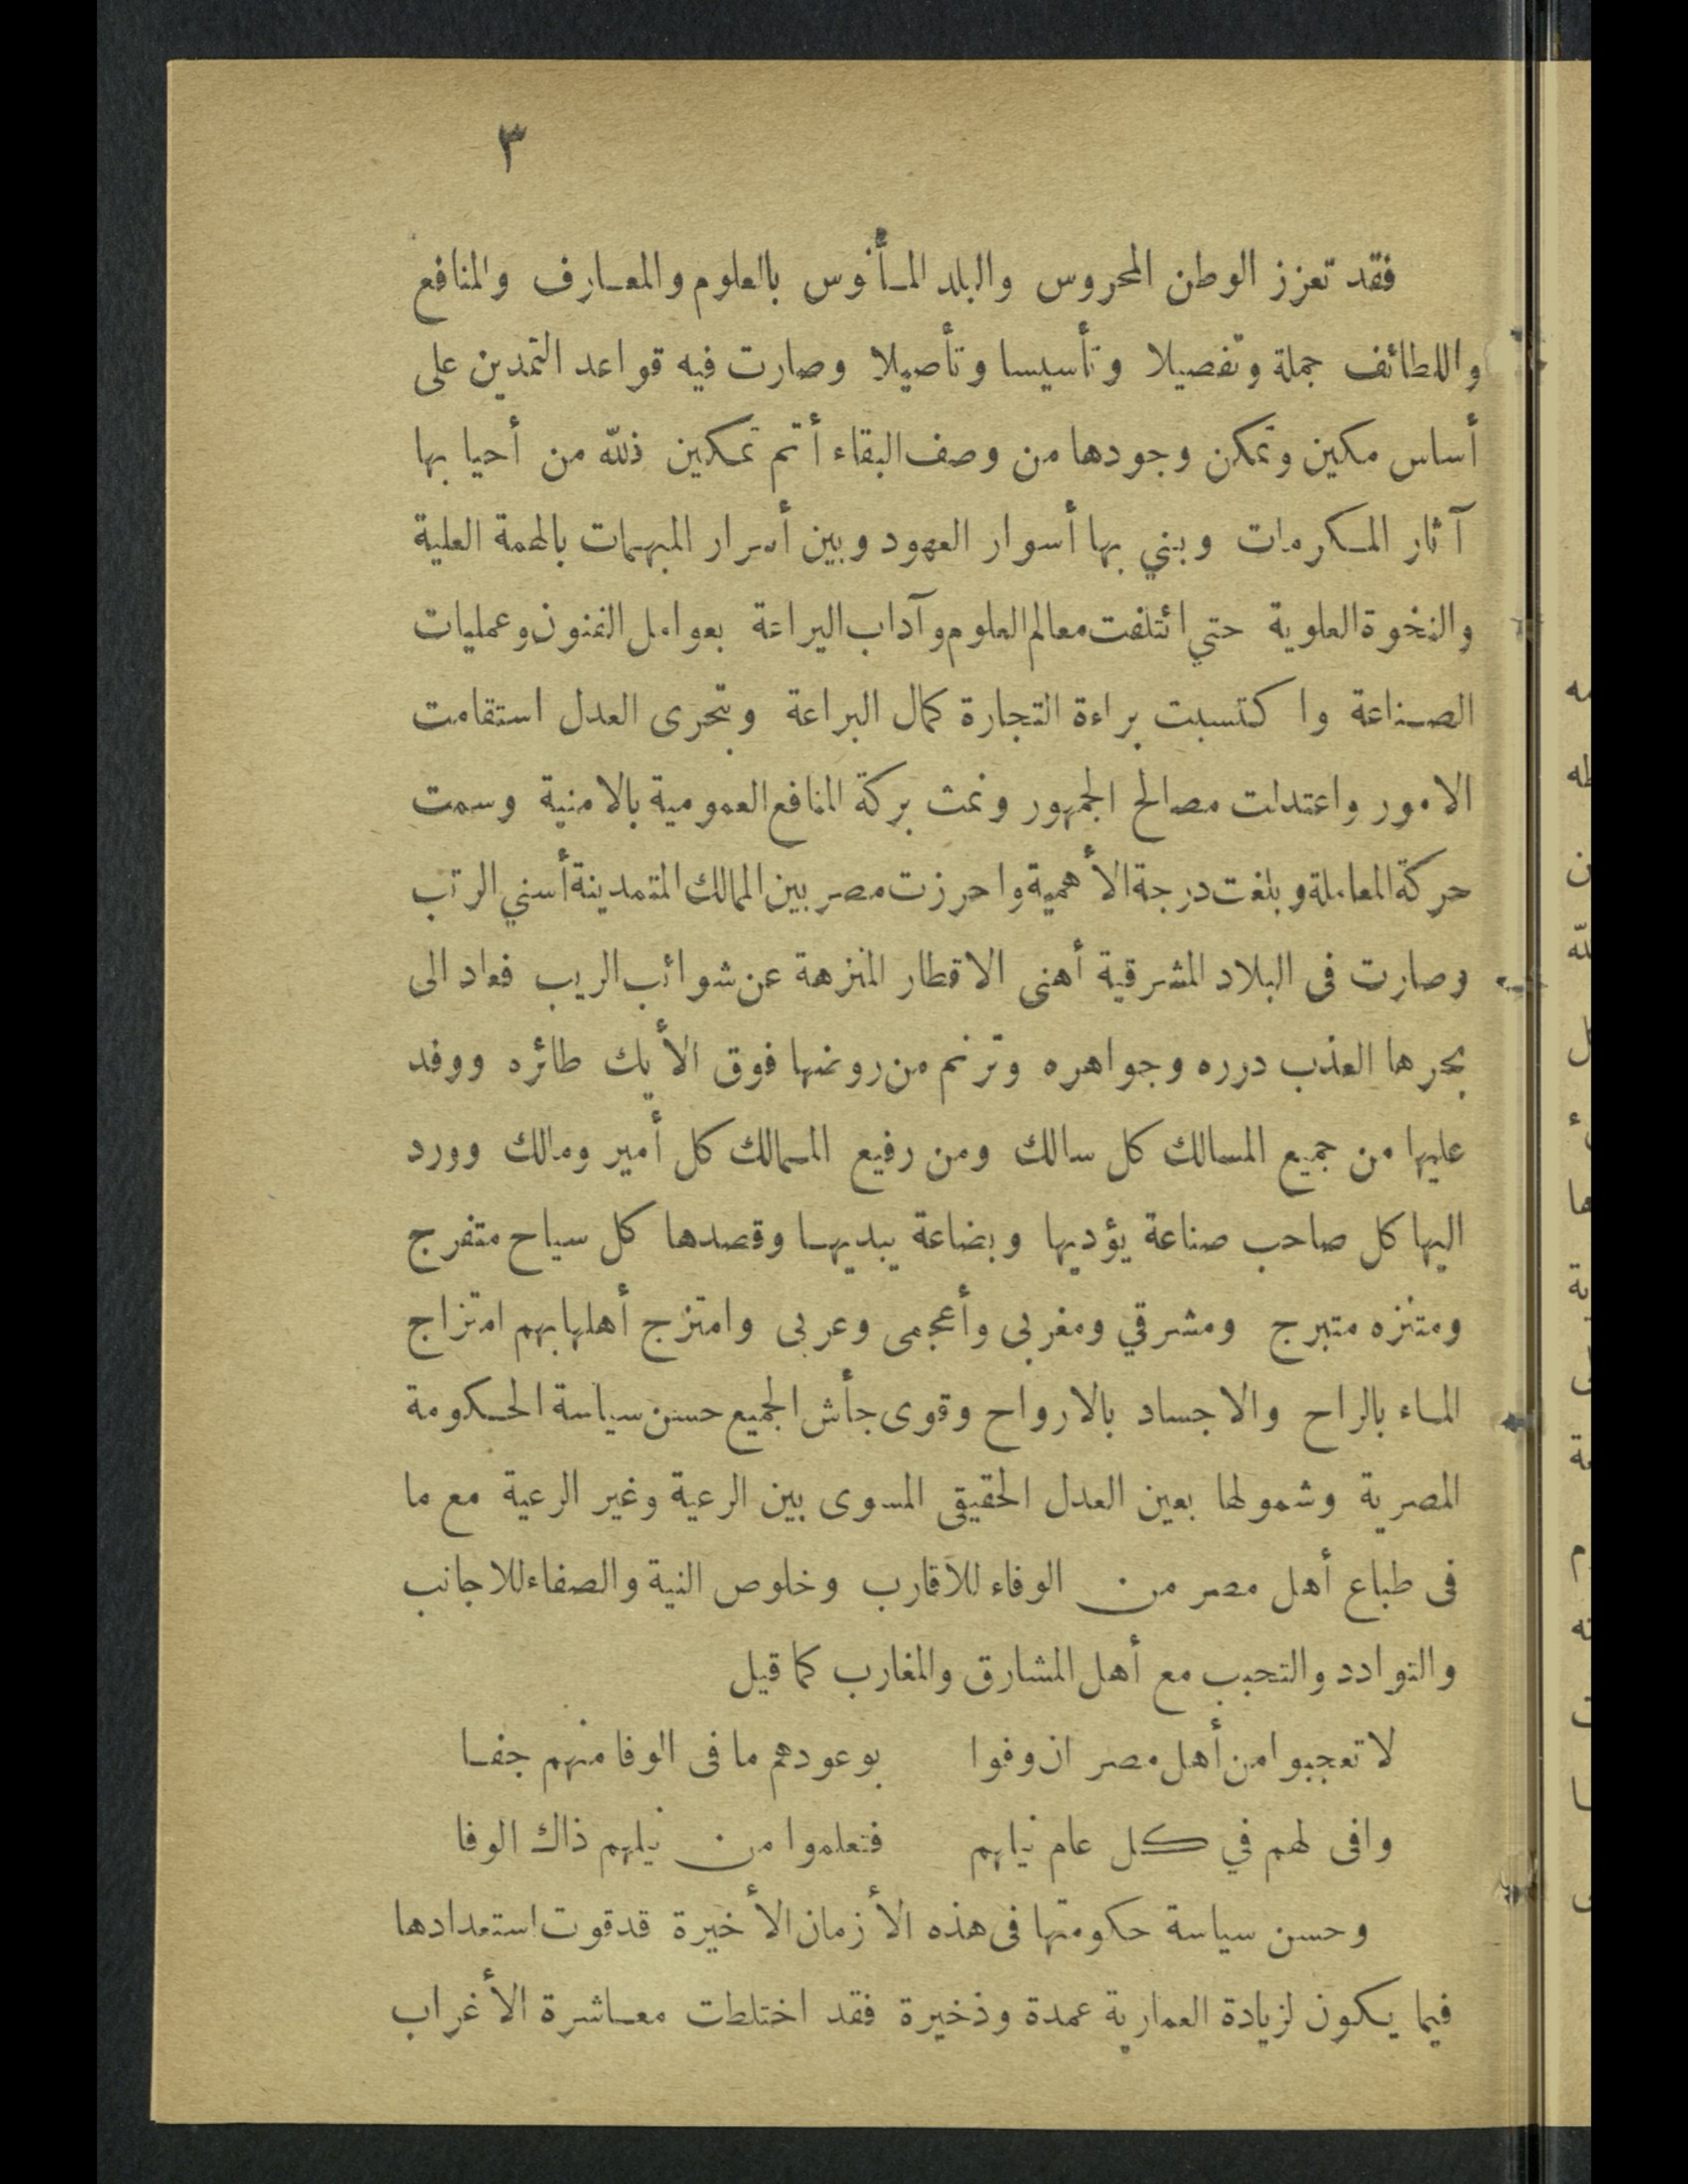 ٣
فقد تعزز الوطن المحروس والبلد المأنوس بالعلوم والمعارف والمنافع
واللطائف جملة وتفصيلا وتأسيسا وتأصيلا وصارت فيه قواعد التمدين على
أساس مكين وتمكن وجودها من وصف البقاء أتم تمكين فلله من أحيا بها
آثار المكرمات وبني بها أسوار العهود وبين أسرار المبهمات بالهمة العلية
والنخوة العلوية حتي ائتلفت معالم العلوم وآداب اليراعة بعوامل الفنون وعمليات
الصناعة واكتسبت براءة التجارة كمال البراعة وبتحرى العدل استقامت
الامور واعتدلت مصالح الجمهور ونمت بركة المنافع العمومية بالامنية وسمت
حركة المعاملة وبلغت درجة الأهمية واحرزت مصر بين الممالك المتمدينة أسني الرتب
وصارت فى البلاد المشرقية أهنى الاقطار المنزهة عن شوائب الريب فعاد الى
بحرها العذب درره وجواهره وترنم من روضها فوق الأيك طائره ووفد
عليها من جميع المسالك كل سالك ومن رفيع الممالك كل أمير ومالك وورد
اليها كل صاحب صناعة يؤديها وبضاعة يبديها وقصدها كل سياح متفرج
ومتنزه متبرج ومشرقي ومغربى وأعجمى وعربى وامتزج أهلها بهم امتزاج
الماء بالراح والاجساد بالارواح وقوى جأش الجميع حسن سياسة الحكومة
المصرية وشمولها بعين العدل الحقيقى المسوى بين الرعية وغير الرعية مع ما
فى طباع أهل مصر من الوفاء للأقارب وخلوص النية والصفاء للاجانب
والتوادد والتحبب مع أهل المشارق والمغارب كما قيل
لا تعجبوا من أهل مصر ان وفوا بوعودهم ما فى الوفا منهم جفا
وافى لهم في كل عام نيلهم فتعلموا من نيلهم ذاك الوفا
وحسن سياسة حكومتها فى هذه الأزمان الأخيرة قد قوت استعدادها
فيما يكون لزيادة العمارية عمدة وذخيرة فقد اختلطت معاشرة الأغراب